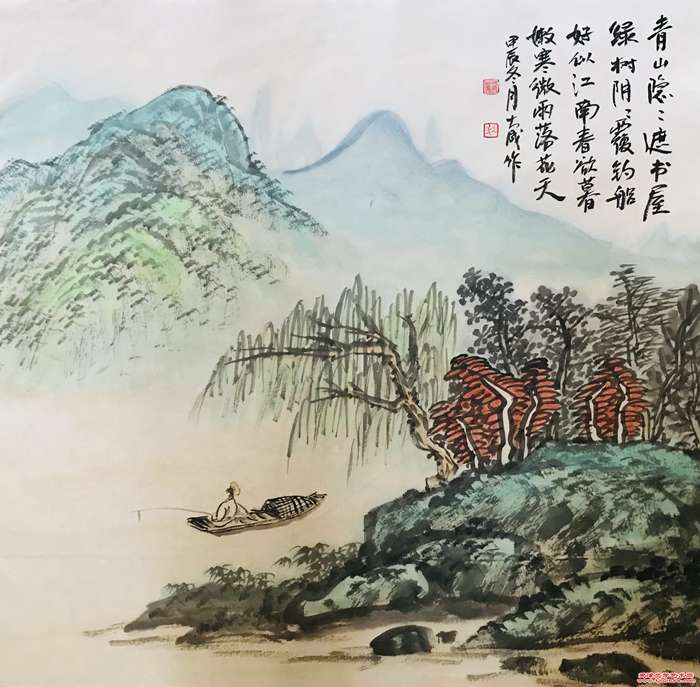 青山隐〻遮书屋
绿树阴〻覆钓船
好似江南春欲暮
嫩寒微雨落花天
甲辰冬月大成作